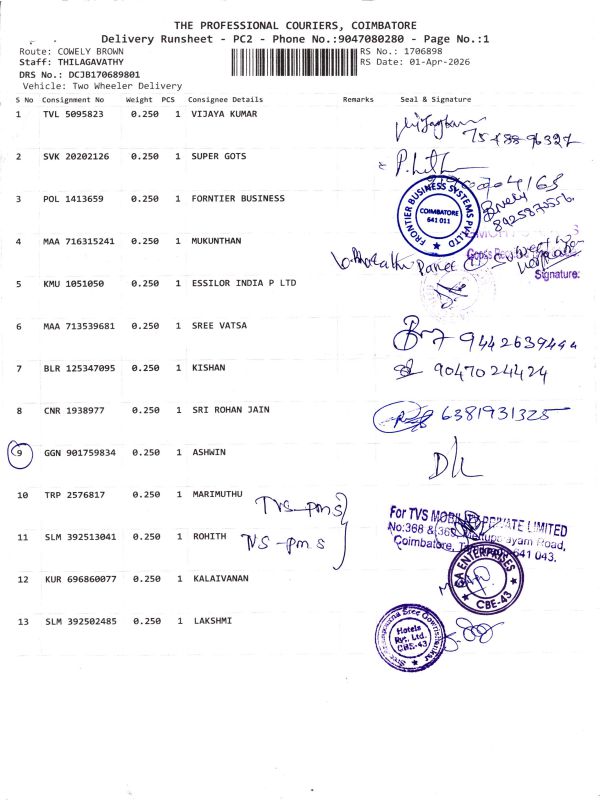 THE PROFESSIONAL COURIERS, COIMBATORE
Delivery Runsheet - PC2 - Phone No.:9047080280 - Page No.:1
Route: COWELY BROWN
Staff: THILAGAVATHY
DRS No.: DCJB170689801
Vehicle: Two Wheeler Delivery
RS No.: 1706898
RS Date: 01-Apr-2026
S No Consignment No Weight PCS Consignee Details Remarks Seal & Signature
1 TVL 5095823 0.250 1 VIJAYA KUMAR
2 SVK 20202126 0.250 1 SUPER GOTS
3 POL 1413659 0.250 1 FORNTIER BUSINESS
FRONTIER BUSINESS SYSTEMS PVT LTD
COIMBATORE
641 011
4 MAA 716315241 0.250 1 MUKUNTHAN
Signature:
5 KMU 1051050 0.250 1 ESSILOR INDIA P LTD
6 MAA 713539681 0.250 1 SREE VATSA
7 BLR 125347095 0.250 1 KISHAN 9047024424
8 CNR 1938977 0.250 1 SRI ROHAN JAIN 6381931325
9 GGN 901759834 0.250 1 ASHWIN D/L
10 TRP 2576817 0.250 1 MARIMUTHU TVS-pms
For TVS MOBILITY PRIVATE LIMITED
11 SLM 392513041 0.250 1 ROHITH TVS-pms
No:368 & 369, Mettupalayam Road,
Coimbatore, 641 043.
12 KUR 696860077 0.250 1 KALAIVANAN
ENTERPRISES
CBE-43
13 SLM 392502485 0.250 1 LAKSHMI
Hotels
Pvt. Ltd.
CBE-43